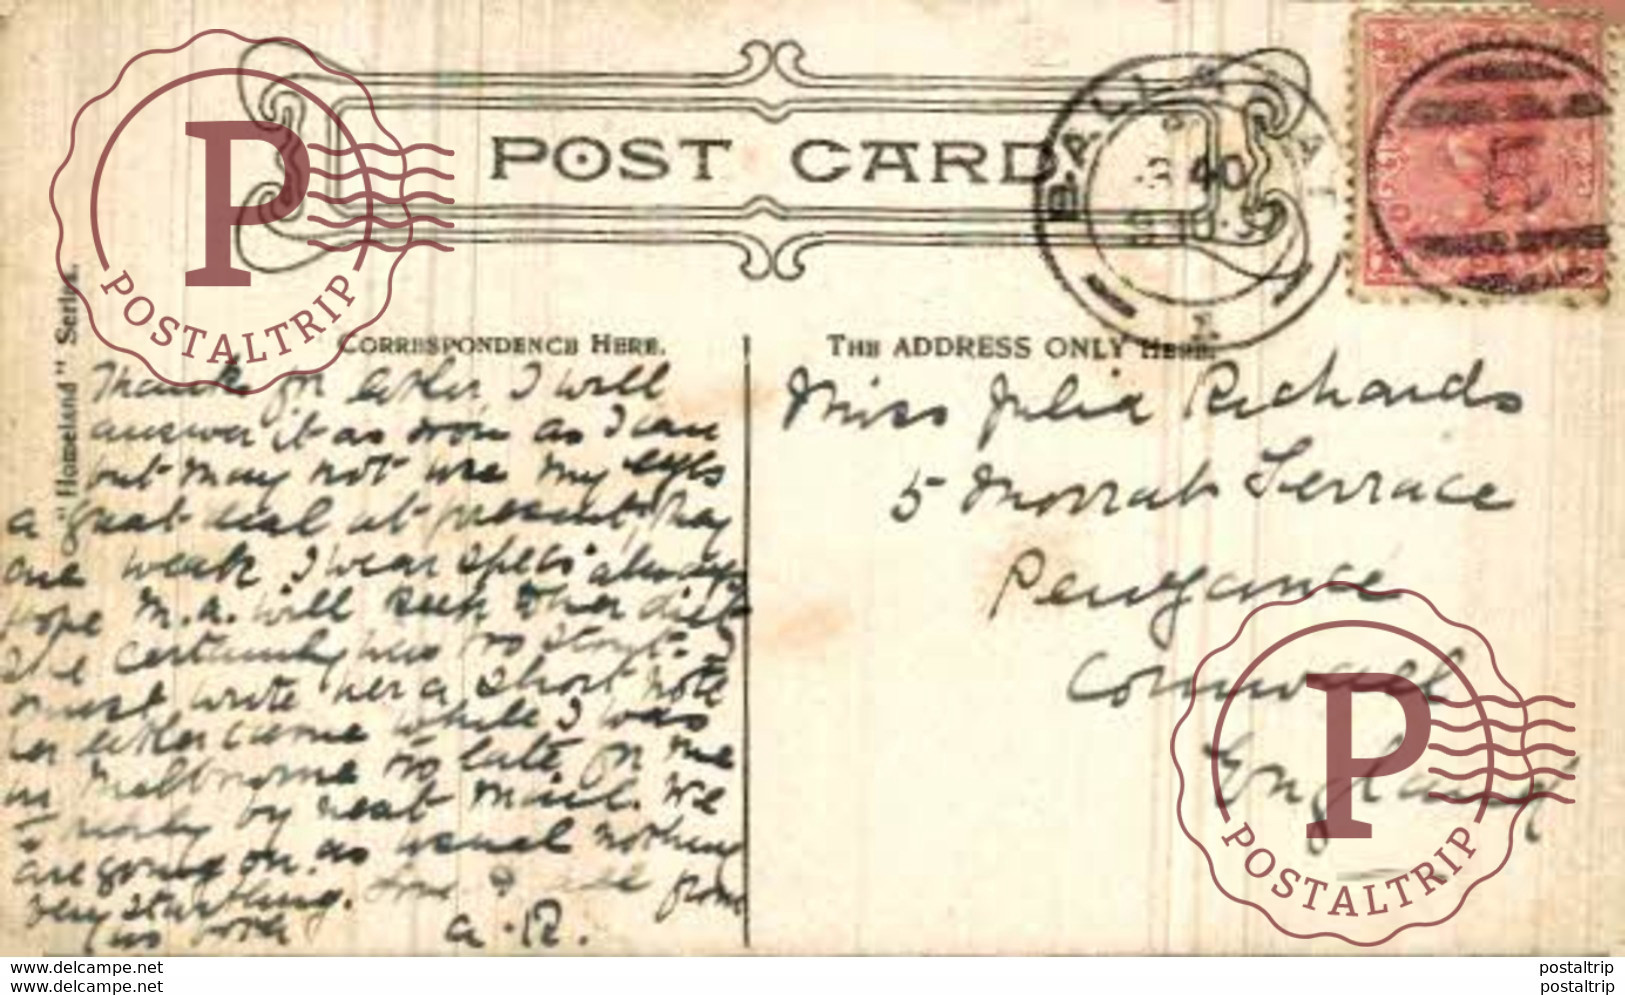 POST CARD
BALLARAT
3 40
5
"Homeland" Series.
CORRESPONDENCE HERE.
THE ADDRESS ONLY HERE.
Thanks for letter I will
answer it as soon as I can
but may not use my eyes
a great deal at present, they
are weak, I wear specs always
Hope M.A. will seek other diet
She certainly was too stout. I
must write her a short note
her letter came while I was
in Melbourne too late for me
to reply by next mail. We
are going on as usual nothing
very startling. Love to all from
us both
A.R.
Miss Julia Richards
5 Morrab Terrace
Penzance
Cornwall
England
P
POSTALTRIP
P
POSTALTRIP
www.delcampe.net
www.delcampe.net
postaltrip
postaltrip